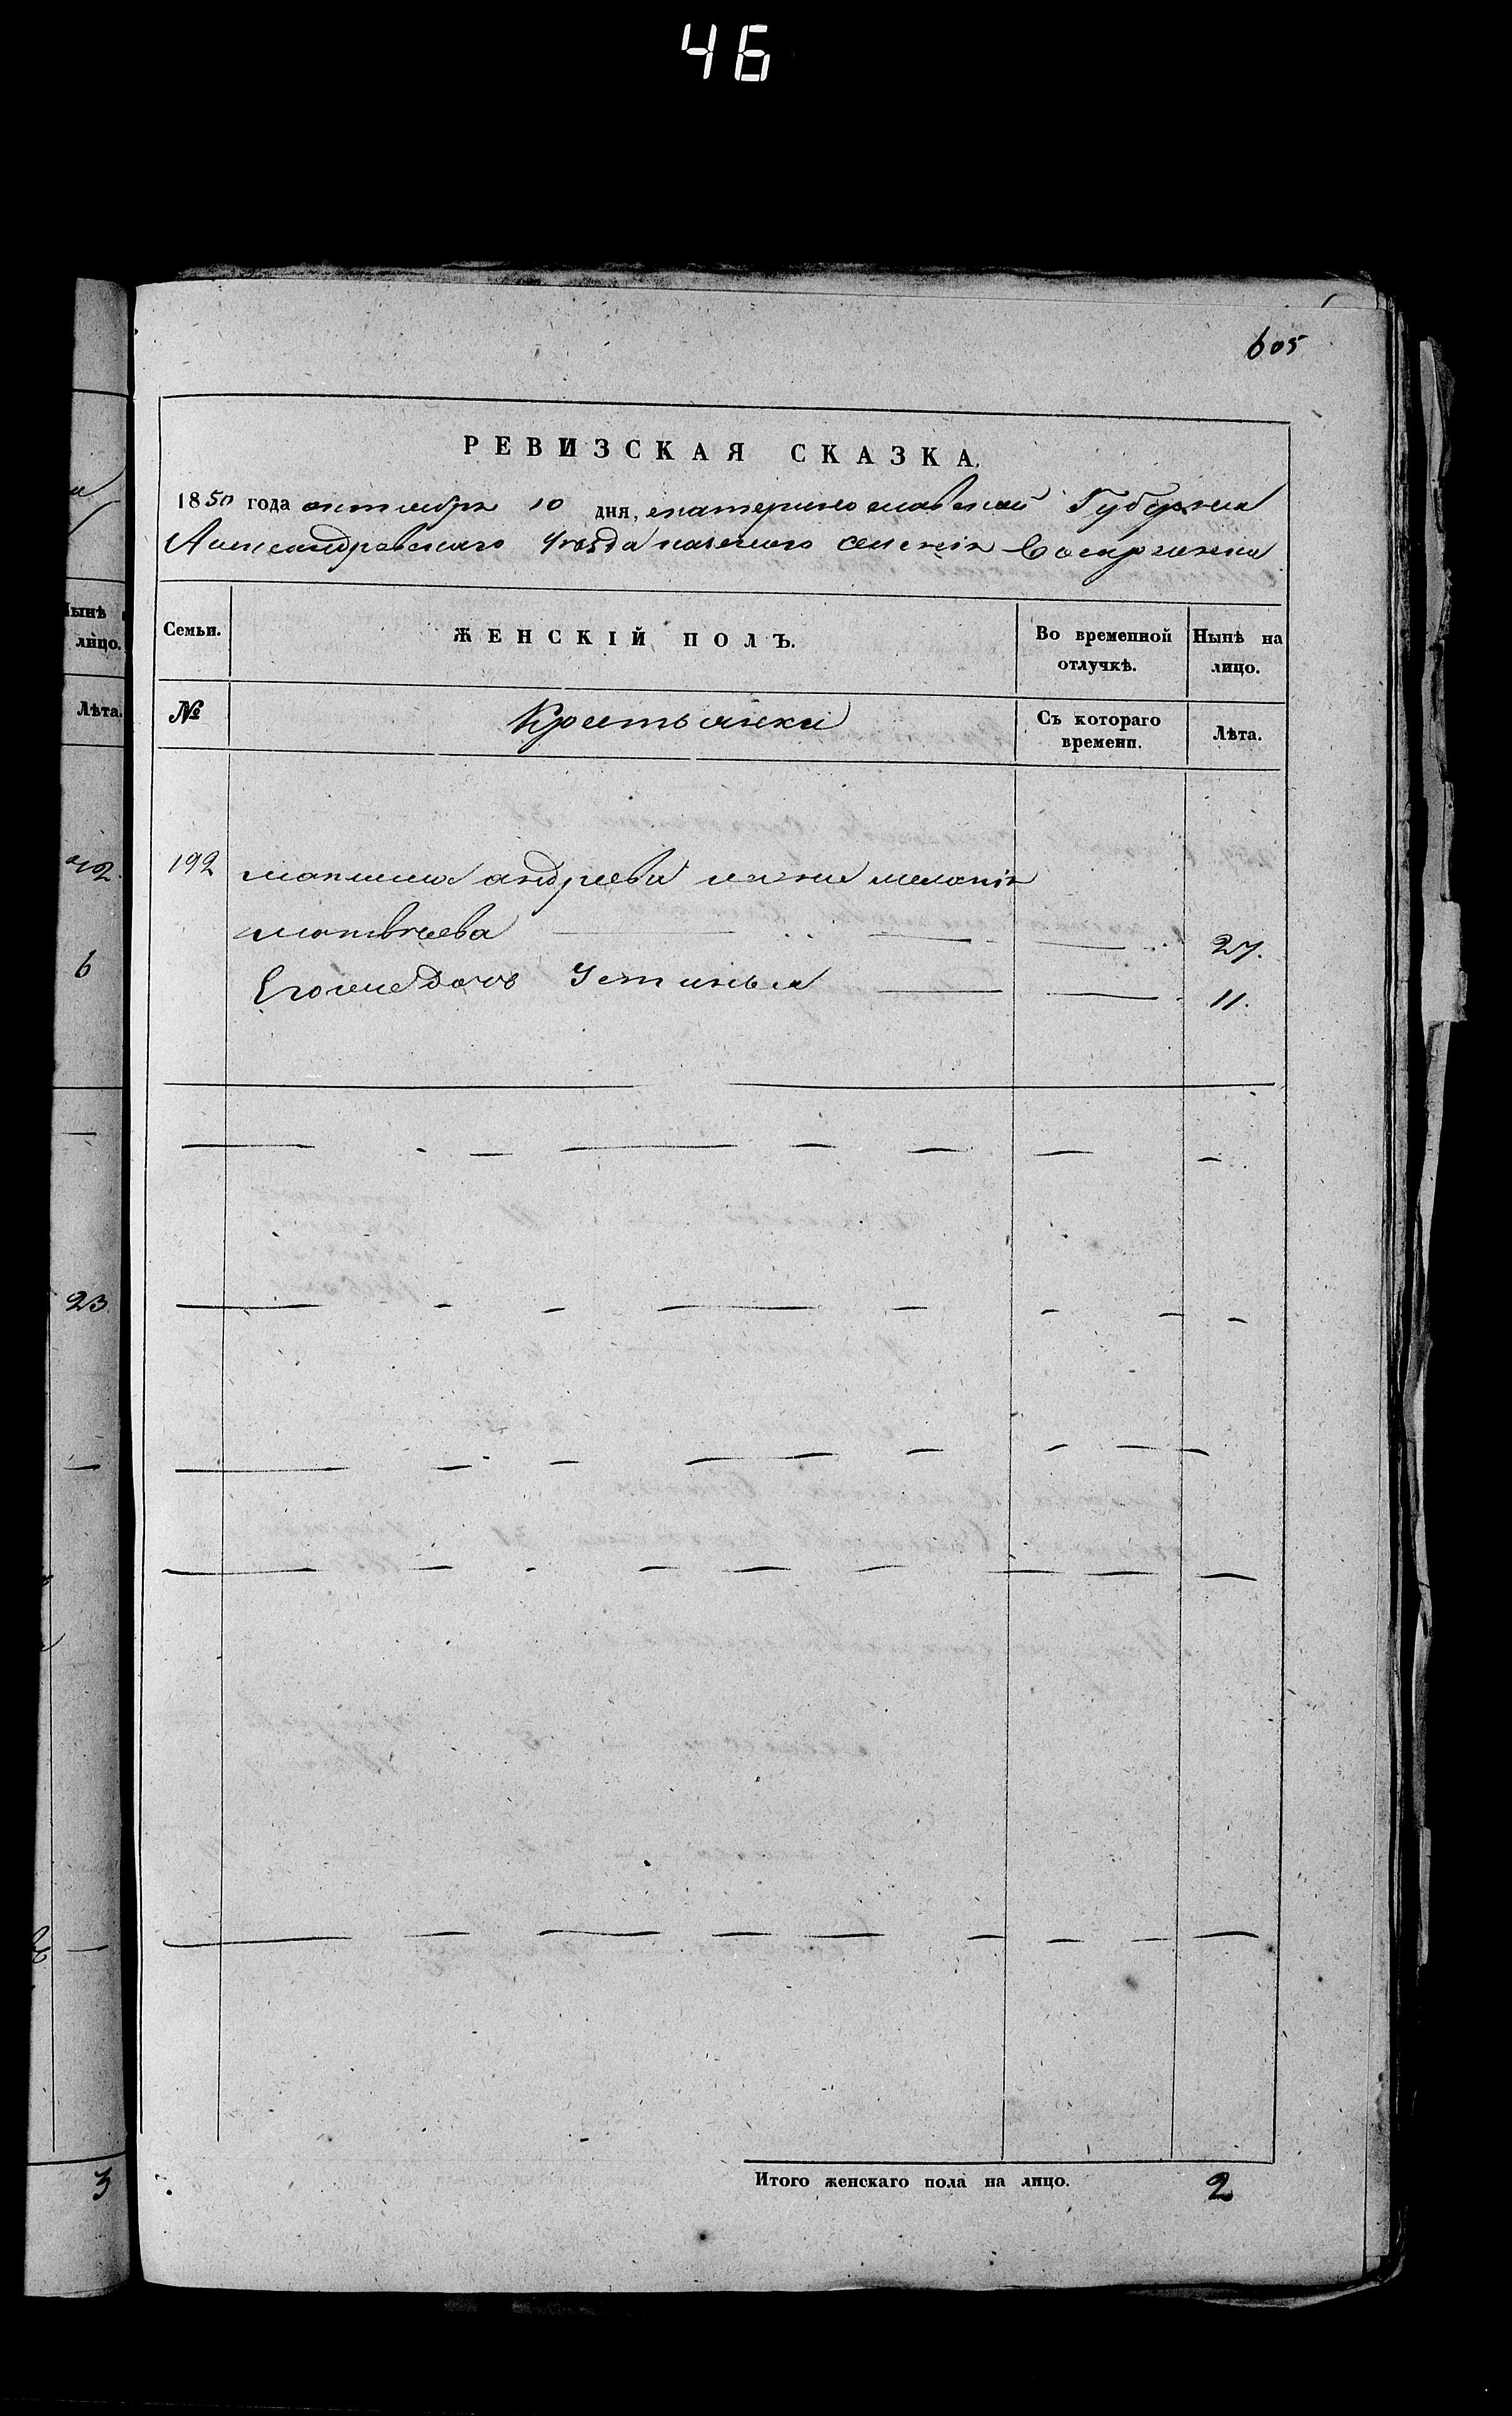 46
605
РЕВИЗСКАЯ СКАЗКА.
1850 года октября 10 дня, екатеринославской Губернии
Александровскаго Уѣзда казеннаго селенія
Семьи.
ЖЕНСКІЙ ПОЛЪ.
Во временной отлучкѣ.
Нынѣ на лицо.
№
Крестьянки
Съ котораго времени.
Лѣта.
192 максима андреева жена меланія
матвѣева 27.
Его же дочь Устинья 11.
Итого женскаго пола на лицо. 2
Нынѣ
лицо.
Лѣта.
42.
6
23
3